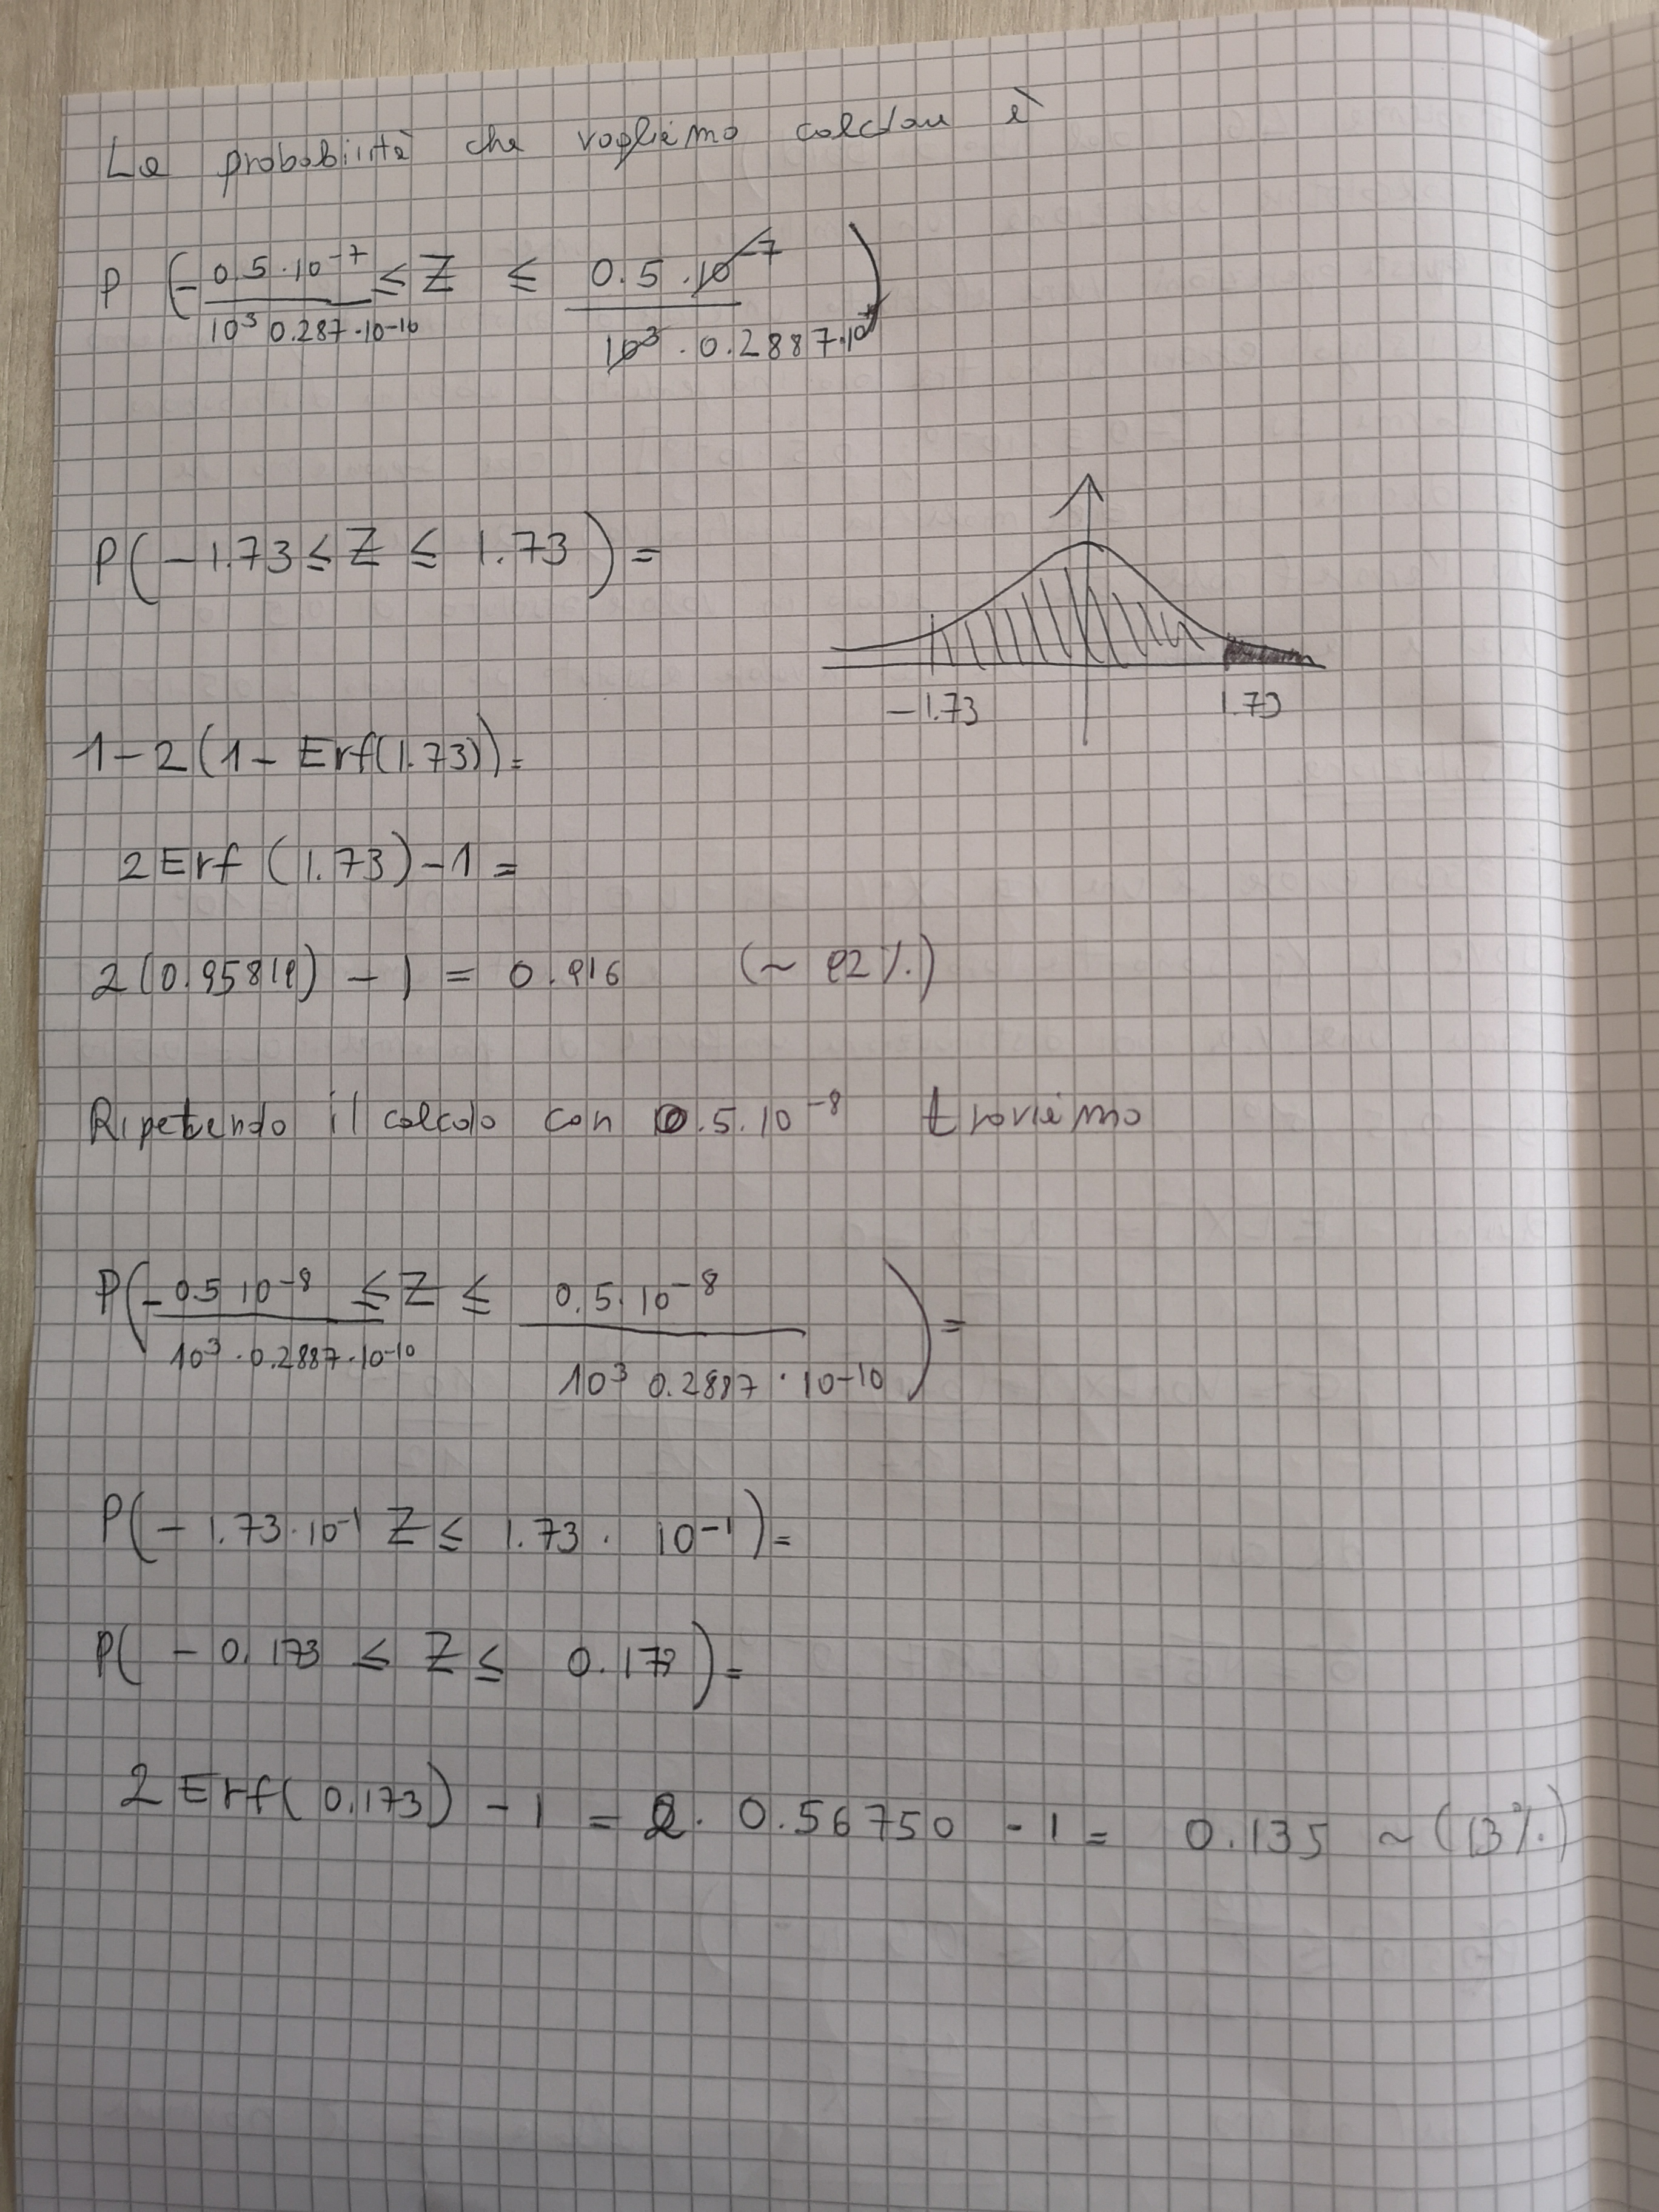 La probabilità che vogliamo calcolare è
P (- 0.5 · 10^-7 / 10^3 0.287 · 10^-10 ≤ Z ≤ 0.5 · 10^-7 / 10^3 · 0.2887 · 10)
P(-1.73 ≤ Z ≤ 1.73) =
-1.73 1.73
1 - 2(1 - Erf(1.73)) =
2 Erf (1.73) - 1 =
2(0.95819) - 1 = 0.916 (~ 92%.)
Ripetendo il calcolo con 0.5.10^-8 troviamo
P(- 0.5 10^-8 / 10^3 · 0.2887 · 10^-10 ≤ Z ≤ 0.5. 10^-8 / 10^3 0.2887 · 10^-10) =
P(- 1.73 · 10^-1 Z ≤ 1.73 · 10^-1) =
P( - 0.173 ≤ Z ≤ 0.173) =
2 Erf( 0.173) - 1 = 2. 0.56750 - 1 = 0.135 ~ (13%.)